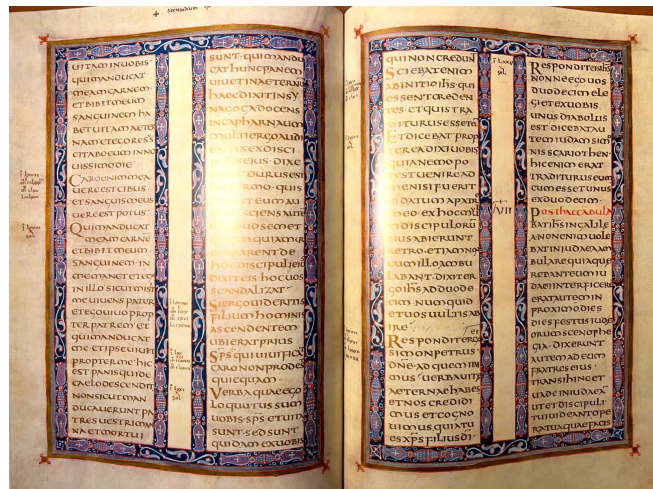 SECUNDUM
UITAM IN UOBIS
QUI MANDUCAT
MEAM CARNEM
ET BIBIT MEUM
SANGUINEM HA
BET UITAM AETER
NAM ET EGO RESS
CITABO EUM INNO
UISSIMO DIE
CARO ENIM MEA
UERE EST CIBUS
ET SANGUIS MEUS
UERE EST POTUS
QUI MANDUCAT
MEAM CARNE
ET BIBIT MEUM
SANGUINEM IN
ME MANET ET EGO
IN ILLO SICUT MISIT
ME UIUENS PATER
ET EGO UIUO PROP
TER PATREM ET
QUI MANDUCAT
ME ET IPSE UIUET
PROPTER ME HIC
EST PANIS QUI DE
CAELO DESCENDIT
NON SICUT MAN
DUCAUERUNT PA
TRES UESTRI MAN
NA ET MORTUI
SUNT QUI MANDU
CAT HUNC PANEM
UIUET IN AETERNUM
HAEC DIXIT IN SY
NAGOGA DOCENS
IN CAPHARNAUM
MULTI ERGO AUDI
ENTES EX DISCI
PULIS EIUS DIXE
RUNT DURUS EST
HIC SERMO QUIS
POTEST EUM AU
DIRE SCIENS AUTE
IHS APUD SEMET
IPSUM QUIA MUR
MURARENT DE
HOC DISCIPULI EIUS
DIXIT EIS HOC UOS
SCANDALIZAT
SI ERGO UIDERITIS
FILIUM HOMINIS
ASCENDENTEM
UBI ERAT PRIUS
SPS QUI UIUIFICAT
CARO NON PRODES
QUICQUAM
UERBA QUAE EGO
LOQUUTUS SUM
UOBIS SPS ET UITA
SUNT SED SUNT
QUIDAM EX UOBIS
QUI NON CREDUN
SCIEBAT ENIM
AB INITIO IHS QUI
ESSENT CREDEN
TES ET QUIS TRA
DITURUS ESSET EUM
ET DICEBAT PROP
TEREA DIXI UOBIS
QUIA NEMO PO
TEST UENIRE AD
ME NISI FUERIT
DATUM A PATRE
MEO EX HOC MULTI
DISCIPULORU
EIUS ABIERUNT
RETRO ET IAM NON
CUM ILLO AMBU
LABANT DIXIT ER
GO IHS AD DUODE
CIM NUMQUID
ET UOS UULTIS AB
IRE
RESPONDIT ERGO
SIMON PETRUS
DNE AD QUEM IBI
MUS UERBA UITAE
AETERNAE HABES
ET NOS CREDIDI
MUS ET COGNO
UIMUS QUIA TU
ES XPS FILIUS DI
VII
RESPONDIT EIS IHS
NONNE EGO UOS
DUODECIM ELE
GI ET EX UOBIS
UNUS DIABOLUS
EST DICEBAT AU
TEM IUDAM SIMO
NIS SCARIOTHEN
HIC ENIM ERAT
TRADITURUS EUM
CUM ESSET UNUS
EX DUODECIM
POST HAEC AMBULA
BAT IHS IN GALILE
AM NON ENIM UOLE
BAT IN IUDAEAM
AMBULARE QUIA QUAE
REBANT EUM IU
DAEI INTERFICERE
ERAT AUTEM IN
PROXIMO DIES
DIES FESTUS IUDE
ORUM SCENOPHE
GIA DIXERUNT
AUTEM AD EUM
FRATRES EIUS
TRANSI HINC ET
UADE IN IUDAEA
UT ET DISCIPULI
TUI UIDEANT OPE
RA TUA QUAE FACIS